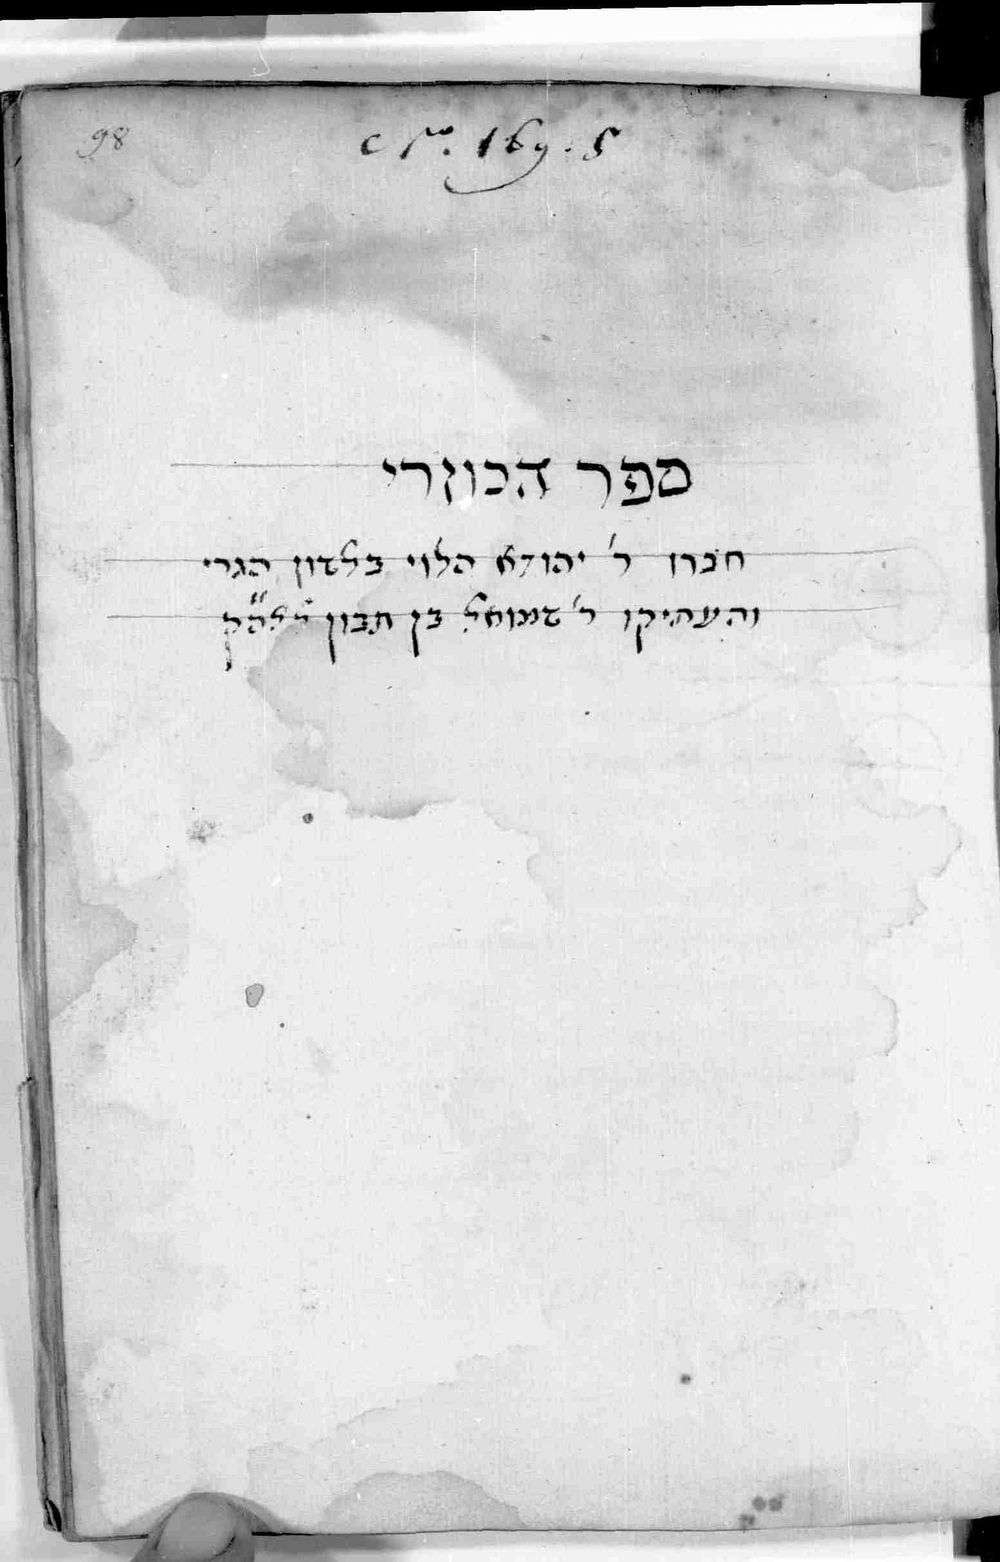 98
c so. 169. 5
ספר הכוזרי
חברו ר' יהודא הלוי בלשון הגרי
והעתיקו ר' שמואל בן תבון ללה"ק